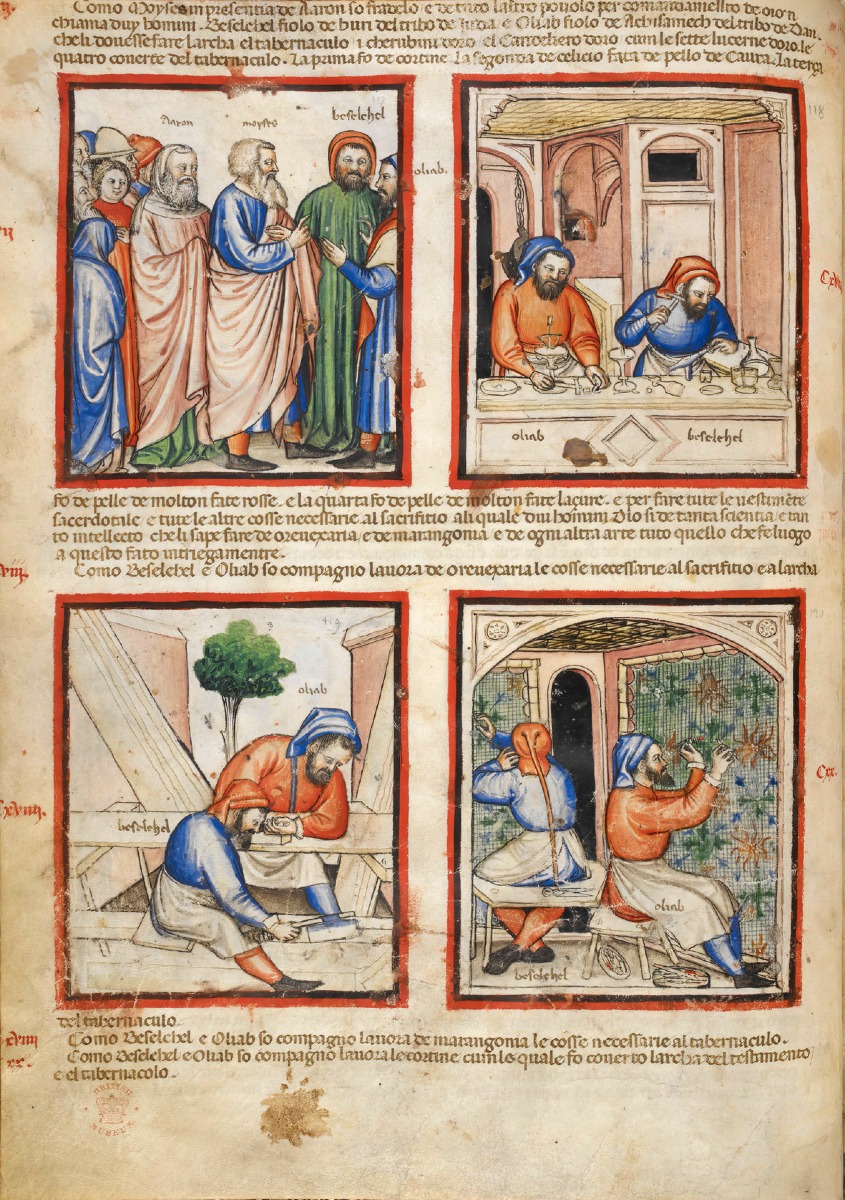 Como Moyses in presentia de Aaron so fradelo e de tuto laltro povolo per comandamento de dio
chiama duy homini. Beselehel fiolo de huri del tribo de Iuda e Oliab fiolo de Achisamech del tribo de Dan.
che li dovesse fare larcha el tabernaculo i cherubini doro el Candeliero doro cum le sette lucerne doro. le
quatro coverte del tabernaculo. La prima fo de cortine. La segonda de celicio fata de pello de Caura. La terza
Aaron
moyses
beselehel
oliab.
118
oliab
beselehel
fo de pelle de molton fate rosse. e la quarta fo de pelle de molton fate laçure. e per fare tute le vestimẽte
sacerdotale e tute le altre cosse necessarie al sacrifitio ali quale dui homini Dio si de tanta scientia e tan
to intellecto che li sape fare de orevexaria e de marangonia e de ogni altra arte tuto quello che fe luogo
a questo fato intriegamentre.
Como Beselehel e Oliab so compagno lavora de orevexaria le cosse necessarie al sacrifitio e a larcha
119
oliab
beselehel
oliab
beselehel
Cxx.
del tabernaculo.
xviiii
Como Beselehel e Oliab so compagno lavora de marangonia le cosse necessarie al tabernaculo.
xx.
Como Beselehel e Oliab so compagno lavora le cortine cum le quale fo coverto larcha del testamento
e el tabernacolo.
BRITISH
MUSEUM